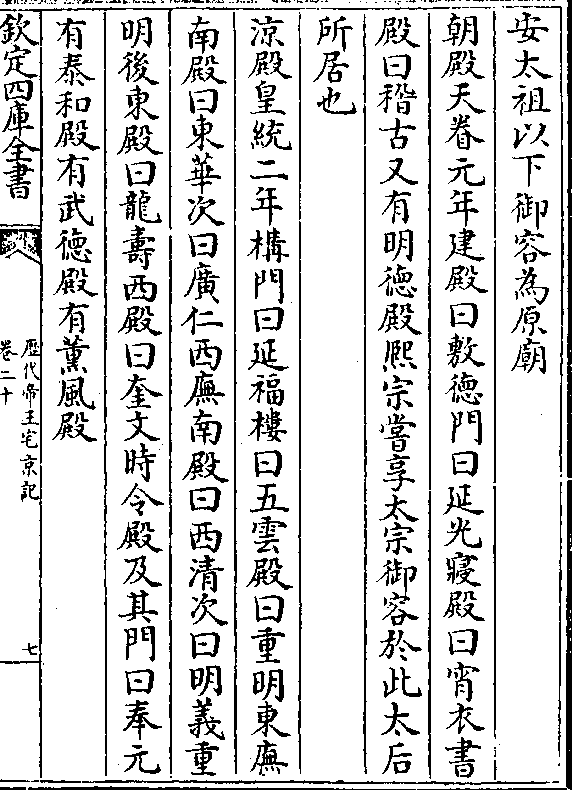 安太祖以下御容為原廟
朝殿天眷元年建殿曰敷德門曰延光寢殿曰宵衣書
殿曰稽古又有明德殿熙宗嘗享太宗御容於此太后
所居也
涼殿皇統二年構門曰延福樓曰五雲殿曰重明東廡
南殿曰東華次曰廣仁西廡南殿曰西清次曰明義重
明後東殿曰龍壽西殿曰奎文時令殿及其門曰奉元
有泰和殿有武德殿有薰風殿
欽定四庫全書
歷代帝王宅京記
卷二十
七